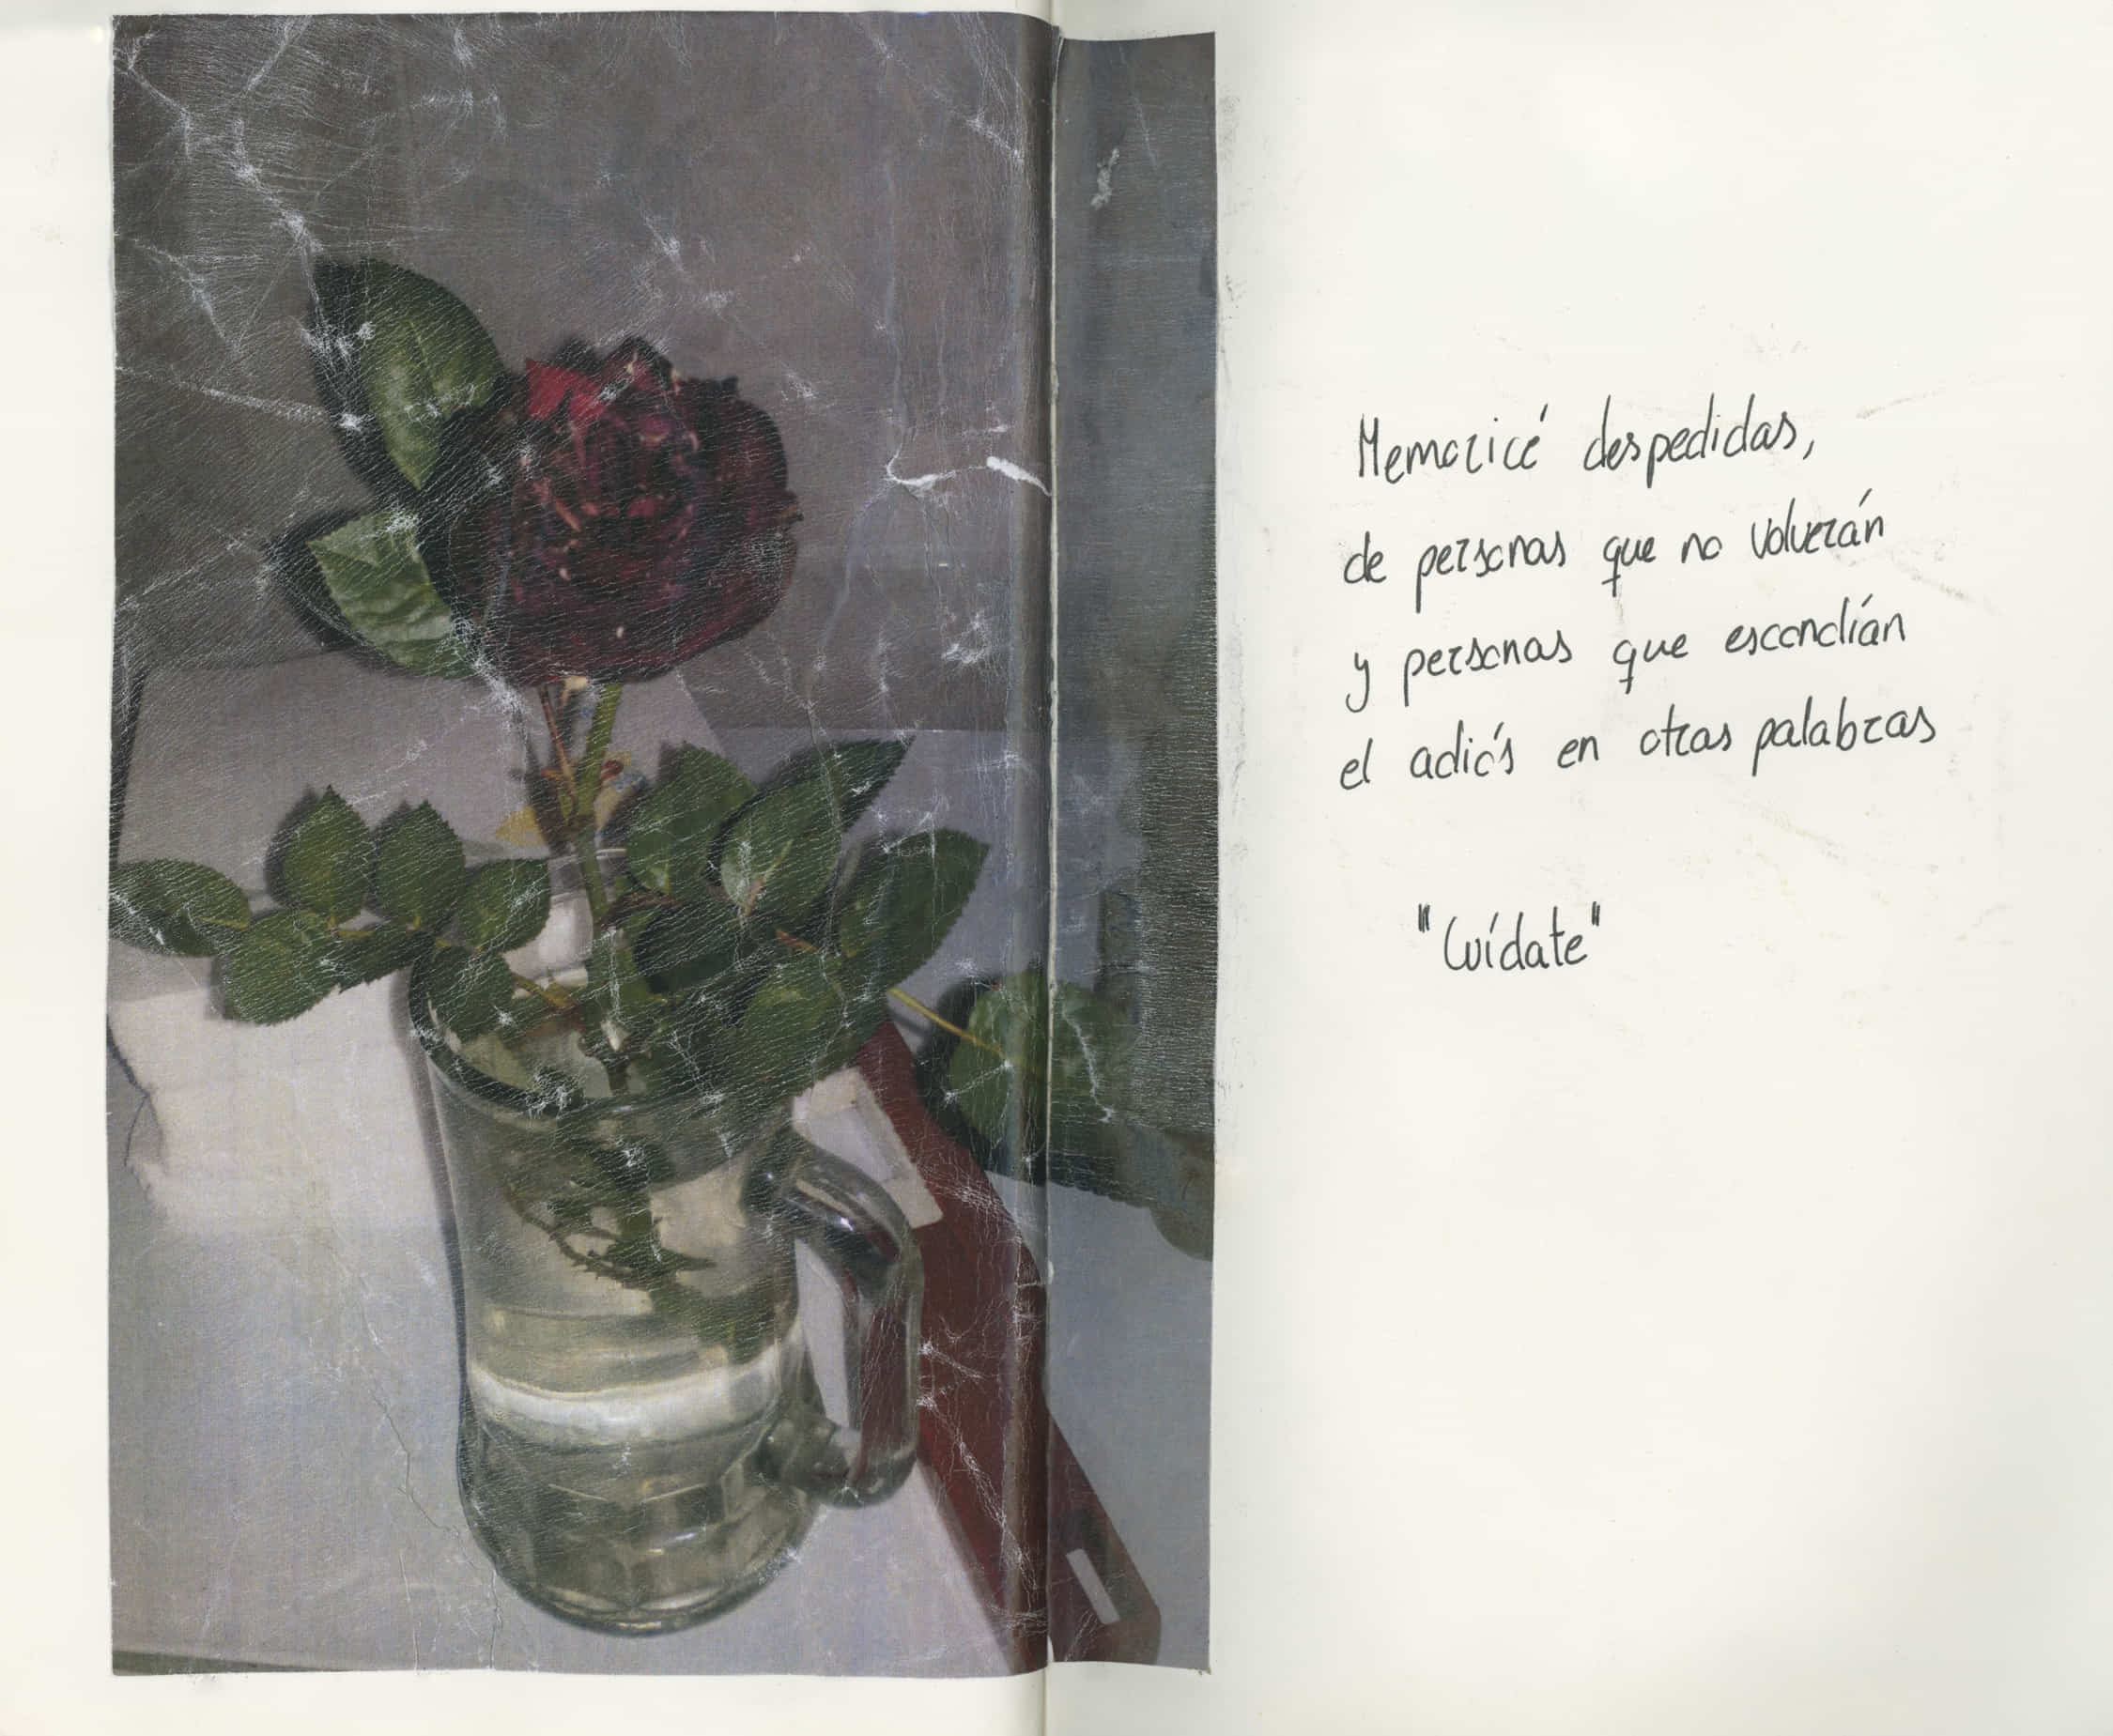 Memoricé despedidas,
de personas que no volverán
y personas que escondían
el adiós en otras palabras
"Cuídate"